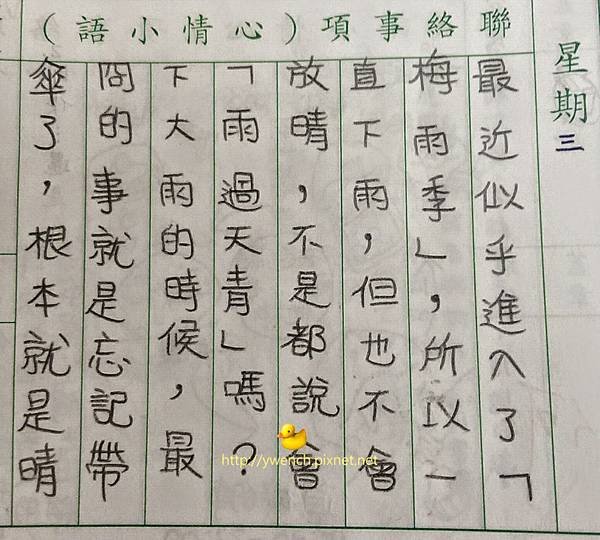 聯絡事項(心情小語)
星期三
最近似乎進入了「
梅雨季」,所以一
直下雨,但也不會
放晴,不是都說會
「雨過天青」嗎?
下大雨的時候,最
冏的事就是忘記帶
傘了,根本就是晴
http://ywench.pixnet.net